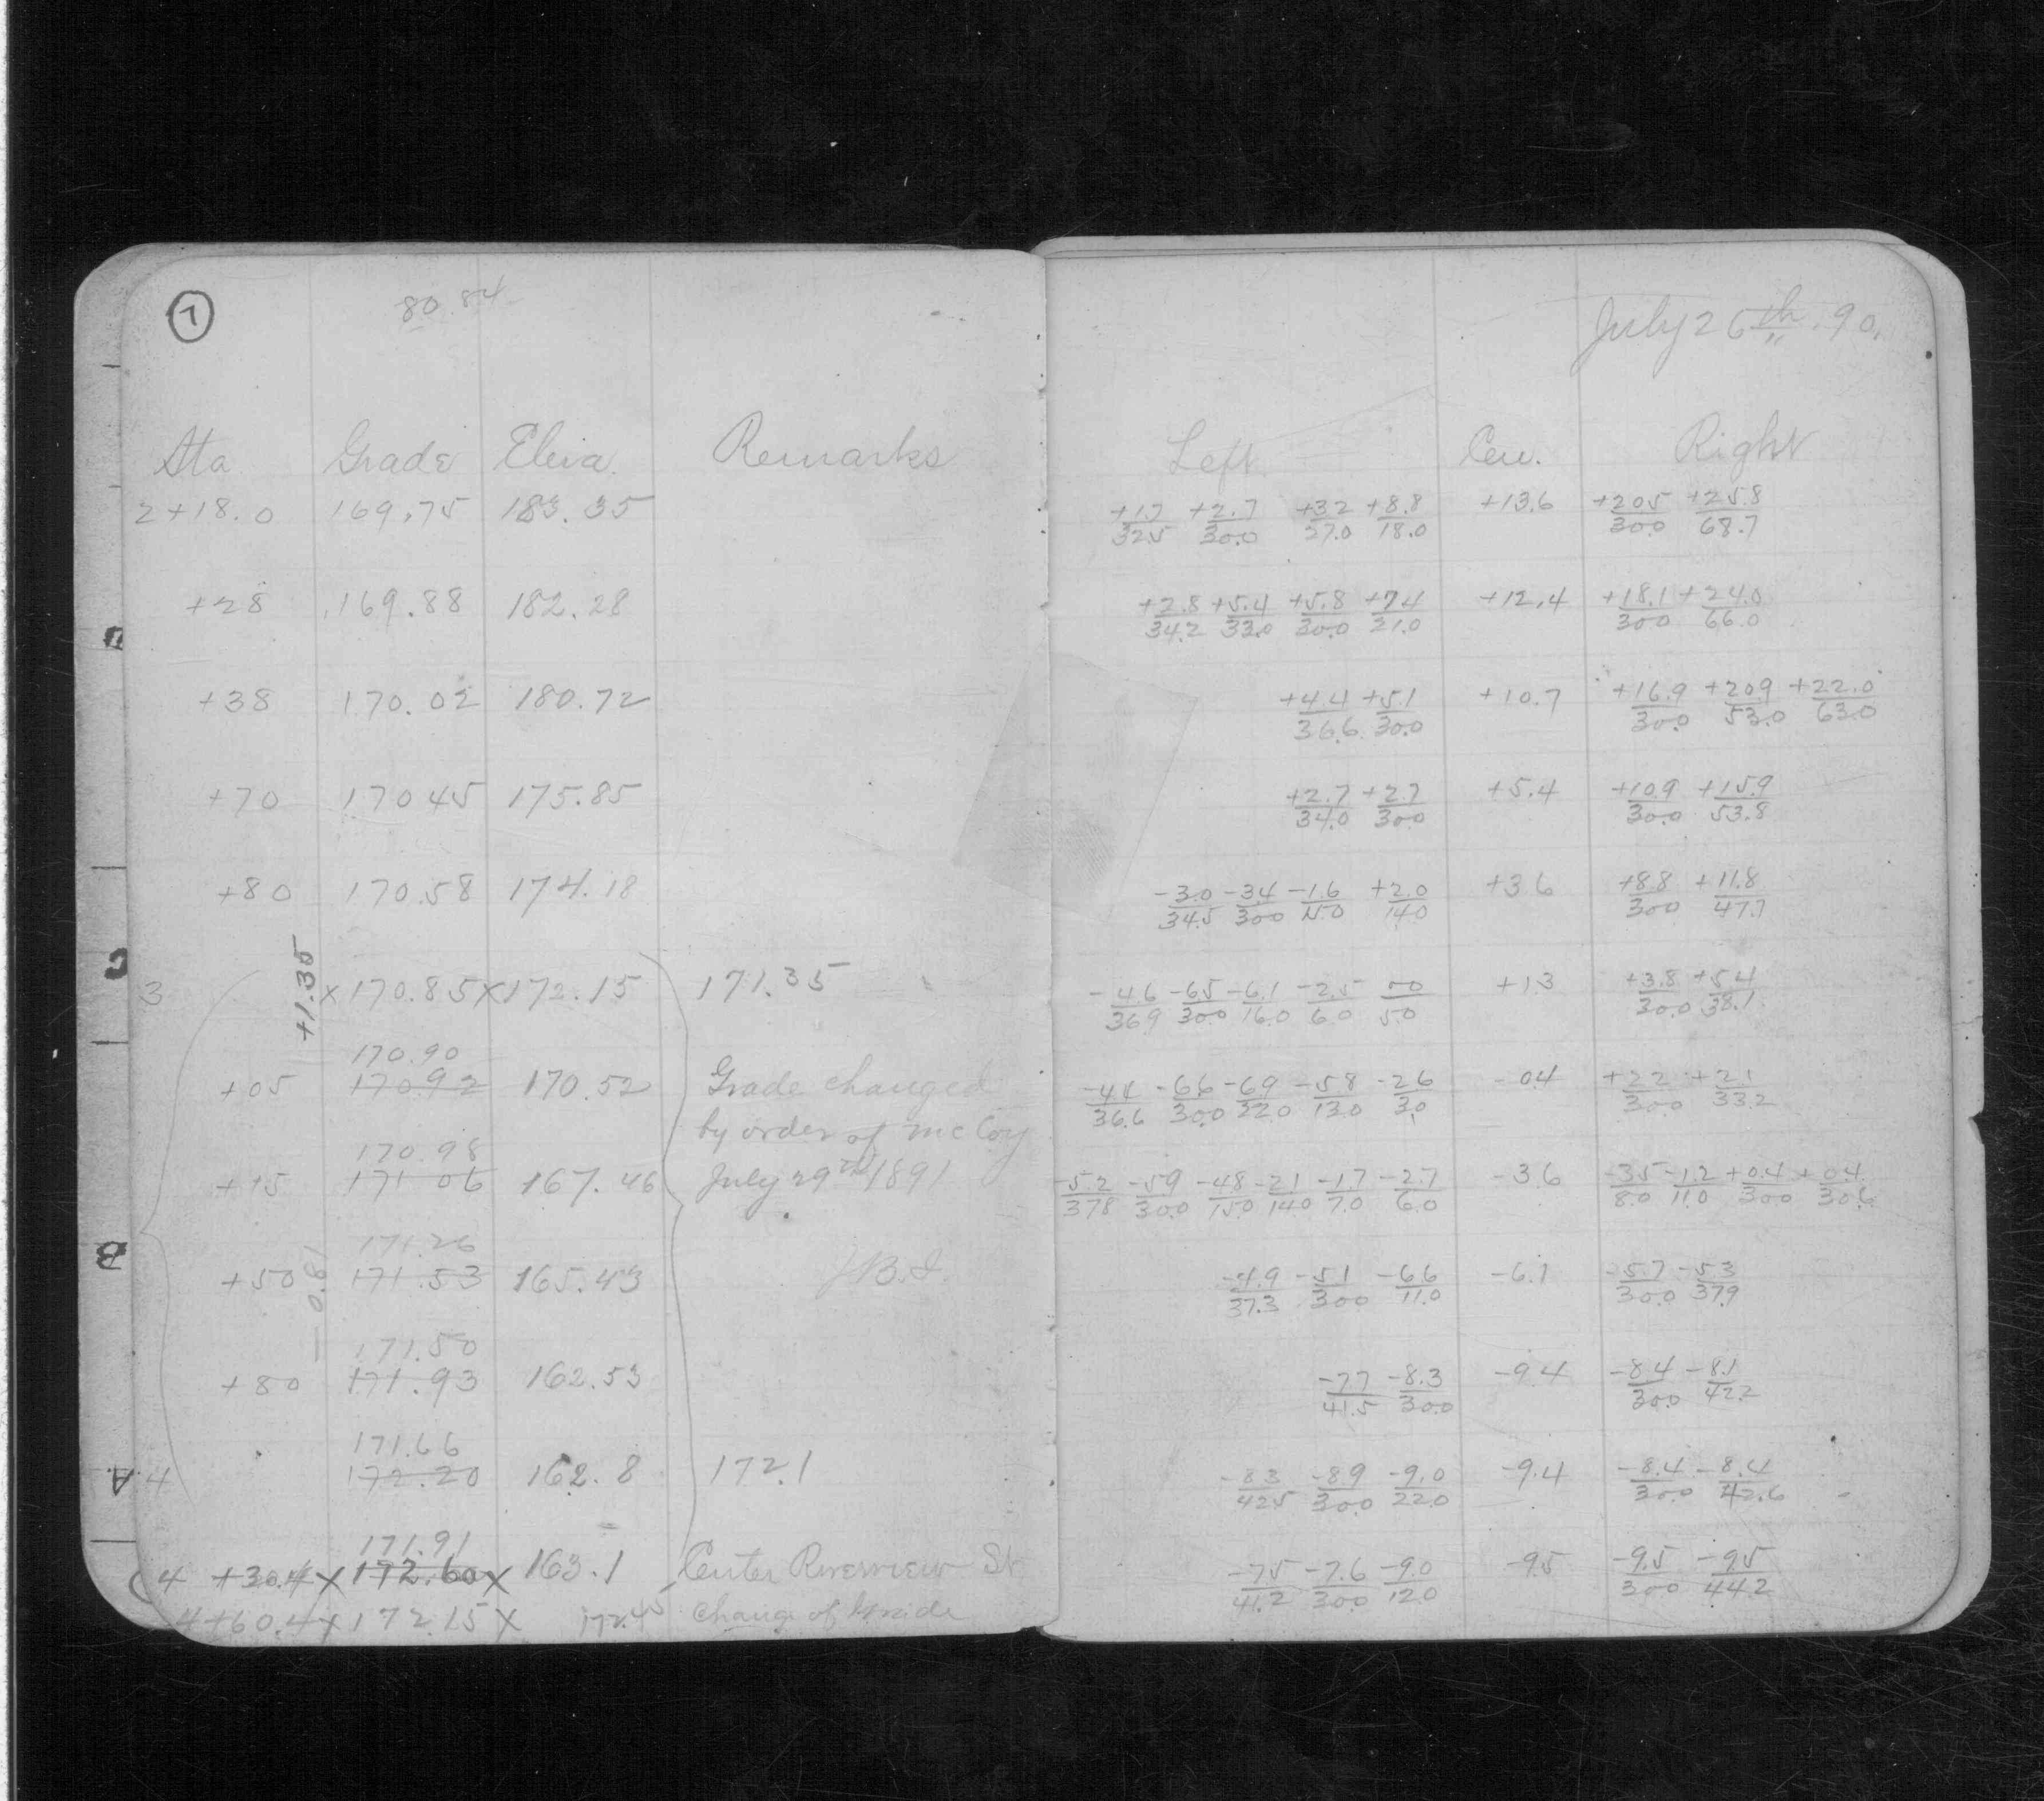 7
80.84
July 26th. 90.
Sta Grade Eleva. Remarks Left Cen. Right
2+18.0 169.75 183.35 +1.7/32.5 +2.7/30.0 +3.2/27.0 +8.8/18.0 +13.6 +20.5/30.0 +25.8/68.7
+28 169.88 182.28 +2.8/34.2 +5.4/33.0 +5.8/30.0 +7.4/21.0 +12.4 +18.1/30.0 +24.0/66.0
+38 170.02 180.72 +4.4/36.6 +5.1/30.0 +10.7 +16.9/30.0 +20.9/53.0 +22.0/63.0
+70 170.45 175.85 +2.7/34.0 +2.7/30.0 +5.4 +10.9/30.0 +15.9/53.8
+80 170.58 174.18 -3.0/34.5 -3.4/30.0 -1.6/15.0 +2.0/14.0 +3.6 +8.8/30.0 +11.8/47.7
+1.35
3 x170.85x 172.15 171.35 -4.6/36.9 -6.5/30.0 -6.1/16.0 -2.5/6.0 0.0/5.0 +1.3 +3.8/30.0 +5.4/38.1
170.90
+05 170.92 170.52 Grade changed -4.4/36.6 -6.6/30.0 -6.9/22.0 -5.8/13.0 -2.6/3.0 -0.4 +2.2/30.0 +2.1/33.2
by order of McCoy
170.98
+15 171.06 167.46 July 29th 1891 -5.2/37.8 -5.9/30.0 -4.8/15.0 -2.1/14.0 -1.7/7.0 -2.7/6.0 -3.6 -3.5/8.0 -1.2/11.0 +0.4/30.0 +0.4/30.6
171.26
+50 171.53 165.43 -4.9/37.3 -5.1/30.0 -6.6/11.0 -6.1 -5.7/30.0 -5.3/37.9
- 0.81
171.50
+80 171.93 162.53 -7.7/41.5 -8.3/30.0 -9.4 -8.4/30.0 -8.1/42.2
171.66
4 172.20 162.8 172.1 -8.3/42.5 -8.9/30.0 -9.0/22.0 -9.4 -8.4/30.0 -8.4/42.6
171.91
4 +30.4 x 172.60 x 163.1 Center Riverview St -7.5/41.2 -7.6/30.0 -9.0/12.0 -9.5 -9.5/30.0 -9.5/44.2
4+60.4 x 172.15 x 172.45 Change of Grade
C
B
A